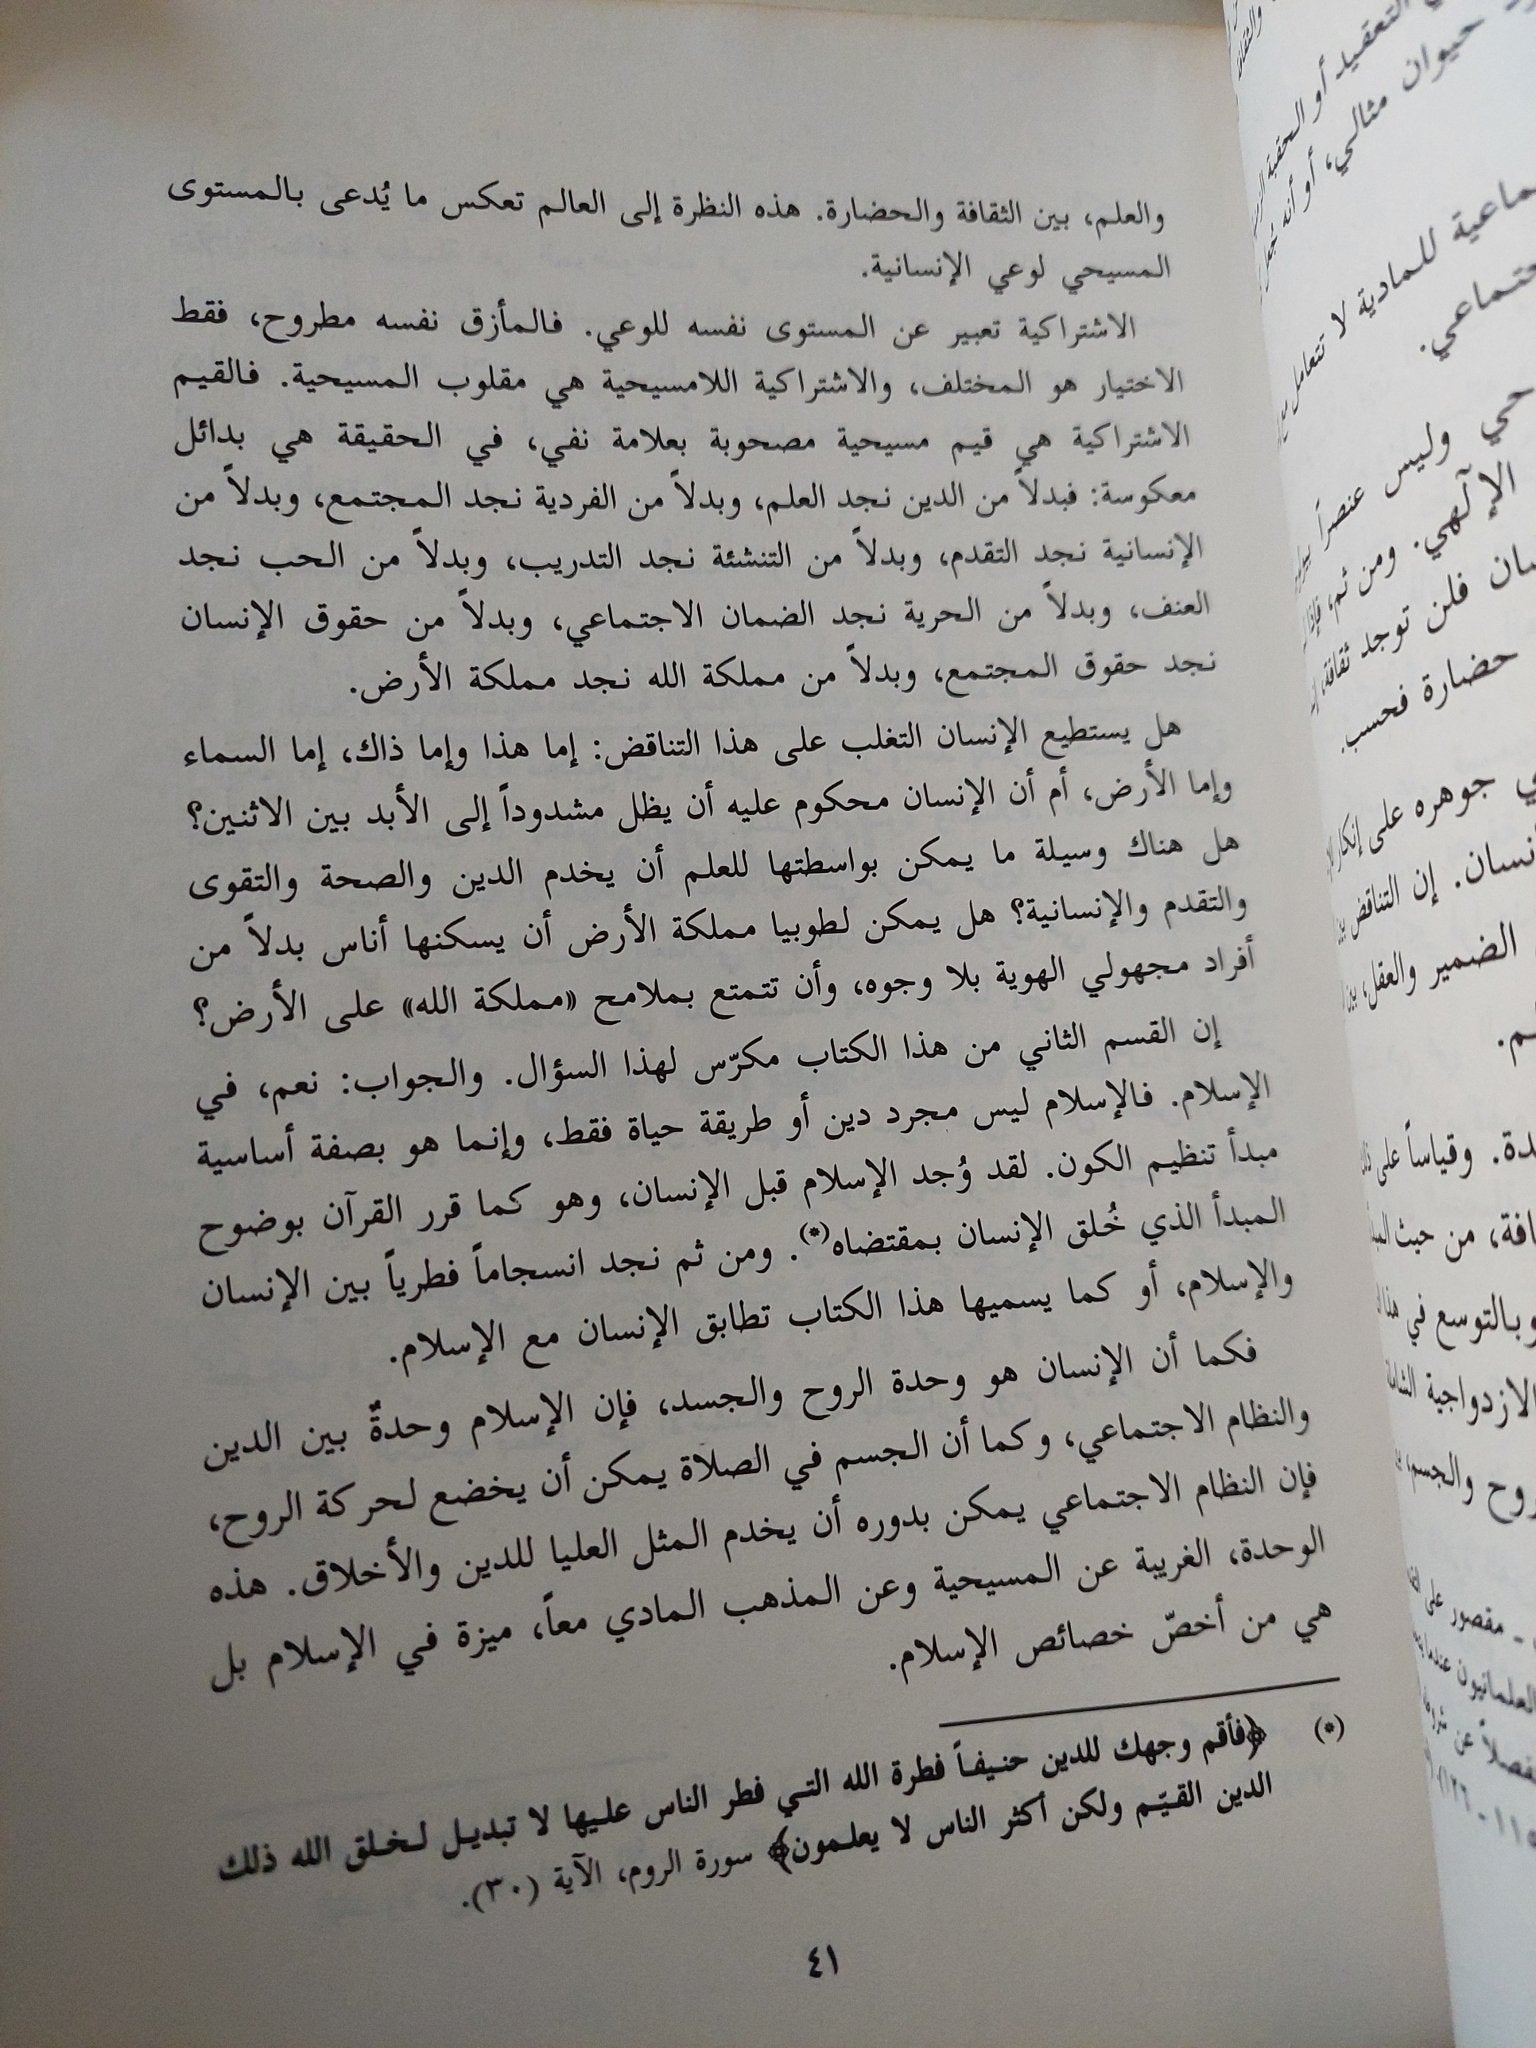 والعلم، بين الثقافة والحضارة. هذه النظرة إلى العالم تعكس ما يُدعى بالمستوى
المسيحي لوعي الإنسانية.
الاشتراكية تعبير عن المستوى نفسه للوعي. فالمأزق نفسه مطروح، فقط
الاختيار هو المختلف، والاشتراكية اللامسيحية هي مقلوب المسيحية. فالقيم
الاشتراكية هي قيم مسيحية مصحوبة بعلامة نفي، في الحقيقة هي بدائل
معكوسة: فبدلاً من الدين نجد العلم، وبدلاً من الفردية نجد المجتمع، وبدلاً من
الإنسانية نجد التقدم، وبدلاً من التنشئة نجد التدريب، وبدلاً من الحب نجد
العنف، وبدلاً من الحرية نجد الضمان الاجتماعي، وبدلاً من حقوق الإنسان
نجد حقوق المجتمع، وبدلاً من مملكة الله نجد مملكة الأرض.
هل يستطيع الإنسان التغلب على هذا التناقض: إما هذا وإما ذاك، إما السماء
وإما الأرض، أم أن الإنسان محكوم عليه أن يظل مشدوداً إلى الأبد بين الاثنين؟
هل هناك وسيلة ما يمكن بواسطتها للعلم أن يخدم الدين والصحة والتقوى
والتقدم والإنسانية؟ هل يمكن لطوبيا مملكة الأرض أن يسكنها أناس بدلاً من
أفراد مجهولي الهوية بلا وجوه، وأن تتمتع بملامح «مملكة الله» على الأرض؟
إن القسم الثاني من هذا الكتاب مكرّس لهذا السؤال. والجواب: نعم، في
الإسلام. فالإسلام ليس مجرد دين أو طريقة حياة فقط، وإنما هو بصفة أساسية
مبدأ تنظيم الكون. لقد وُجد الإسلام قبل الإنسان، وهو كما قرر القرآن بوضوح
المبدأ الذي خُلق الإنسان بمقتضاه(*). ومن ثم نجد انسجاماً فطرياً بين الإنسان
والإسلام، أو كما يسميها هذا الكتاب تطابق الإنسان مع الإسلام.
فكما أن الإنسان هو وحدة الروح والجسد، فإن الإسلام وحدةٌ بين الدين
والنظام الاجتماعي، وكما أن الجسم في الصلاة يمكن أن يخضع لحركة الروح،
فإن النظام الاجتماعي يمكن بدوره أن يخدم المثل العليا للدين والأخلاق. هذه
الوحدة، الغريبة عن المسيحية وعن المذهب المادي معاً، ميزة في الإسلام بل
هي من أخصّ خصائص الإسلام.
(*) ﴿فأقم وجهك للدين حنيفاً فطرة الله التي فطر الناس عليها لا تبديل لخلق الله ذلك
الدين القيّم ولكن أكثر الناس لا يعلمون﴾ سورة الروم، الآية (٣٠).
٤١
التعقيد أو الحقبة
حيوان مثالي، أو أنه
للمادية لا تتعامل
حي وليس عنصراً
الإلهي. ومن ثم،
فلن توجد ثقافة،
حضارة فحسب.
جوهره على إنكار
إن التناقض
الضمير والعقل،
وقياساً على
من حيث
وبالتوسع في هذا
الازدواجية
والجسم،
مقصور على
العلمانيون عندما